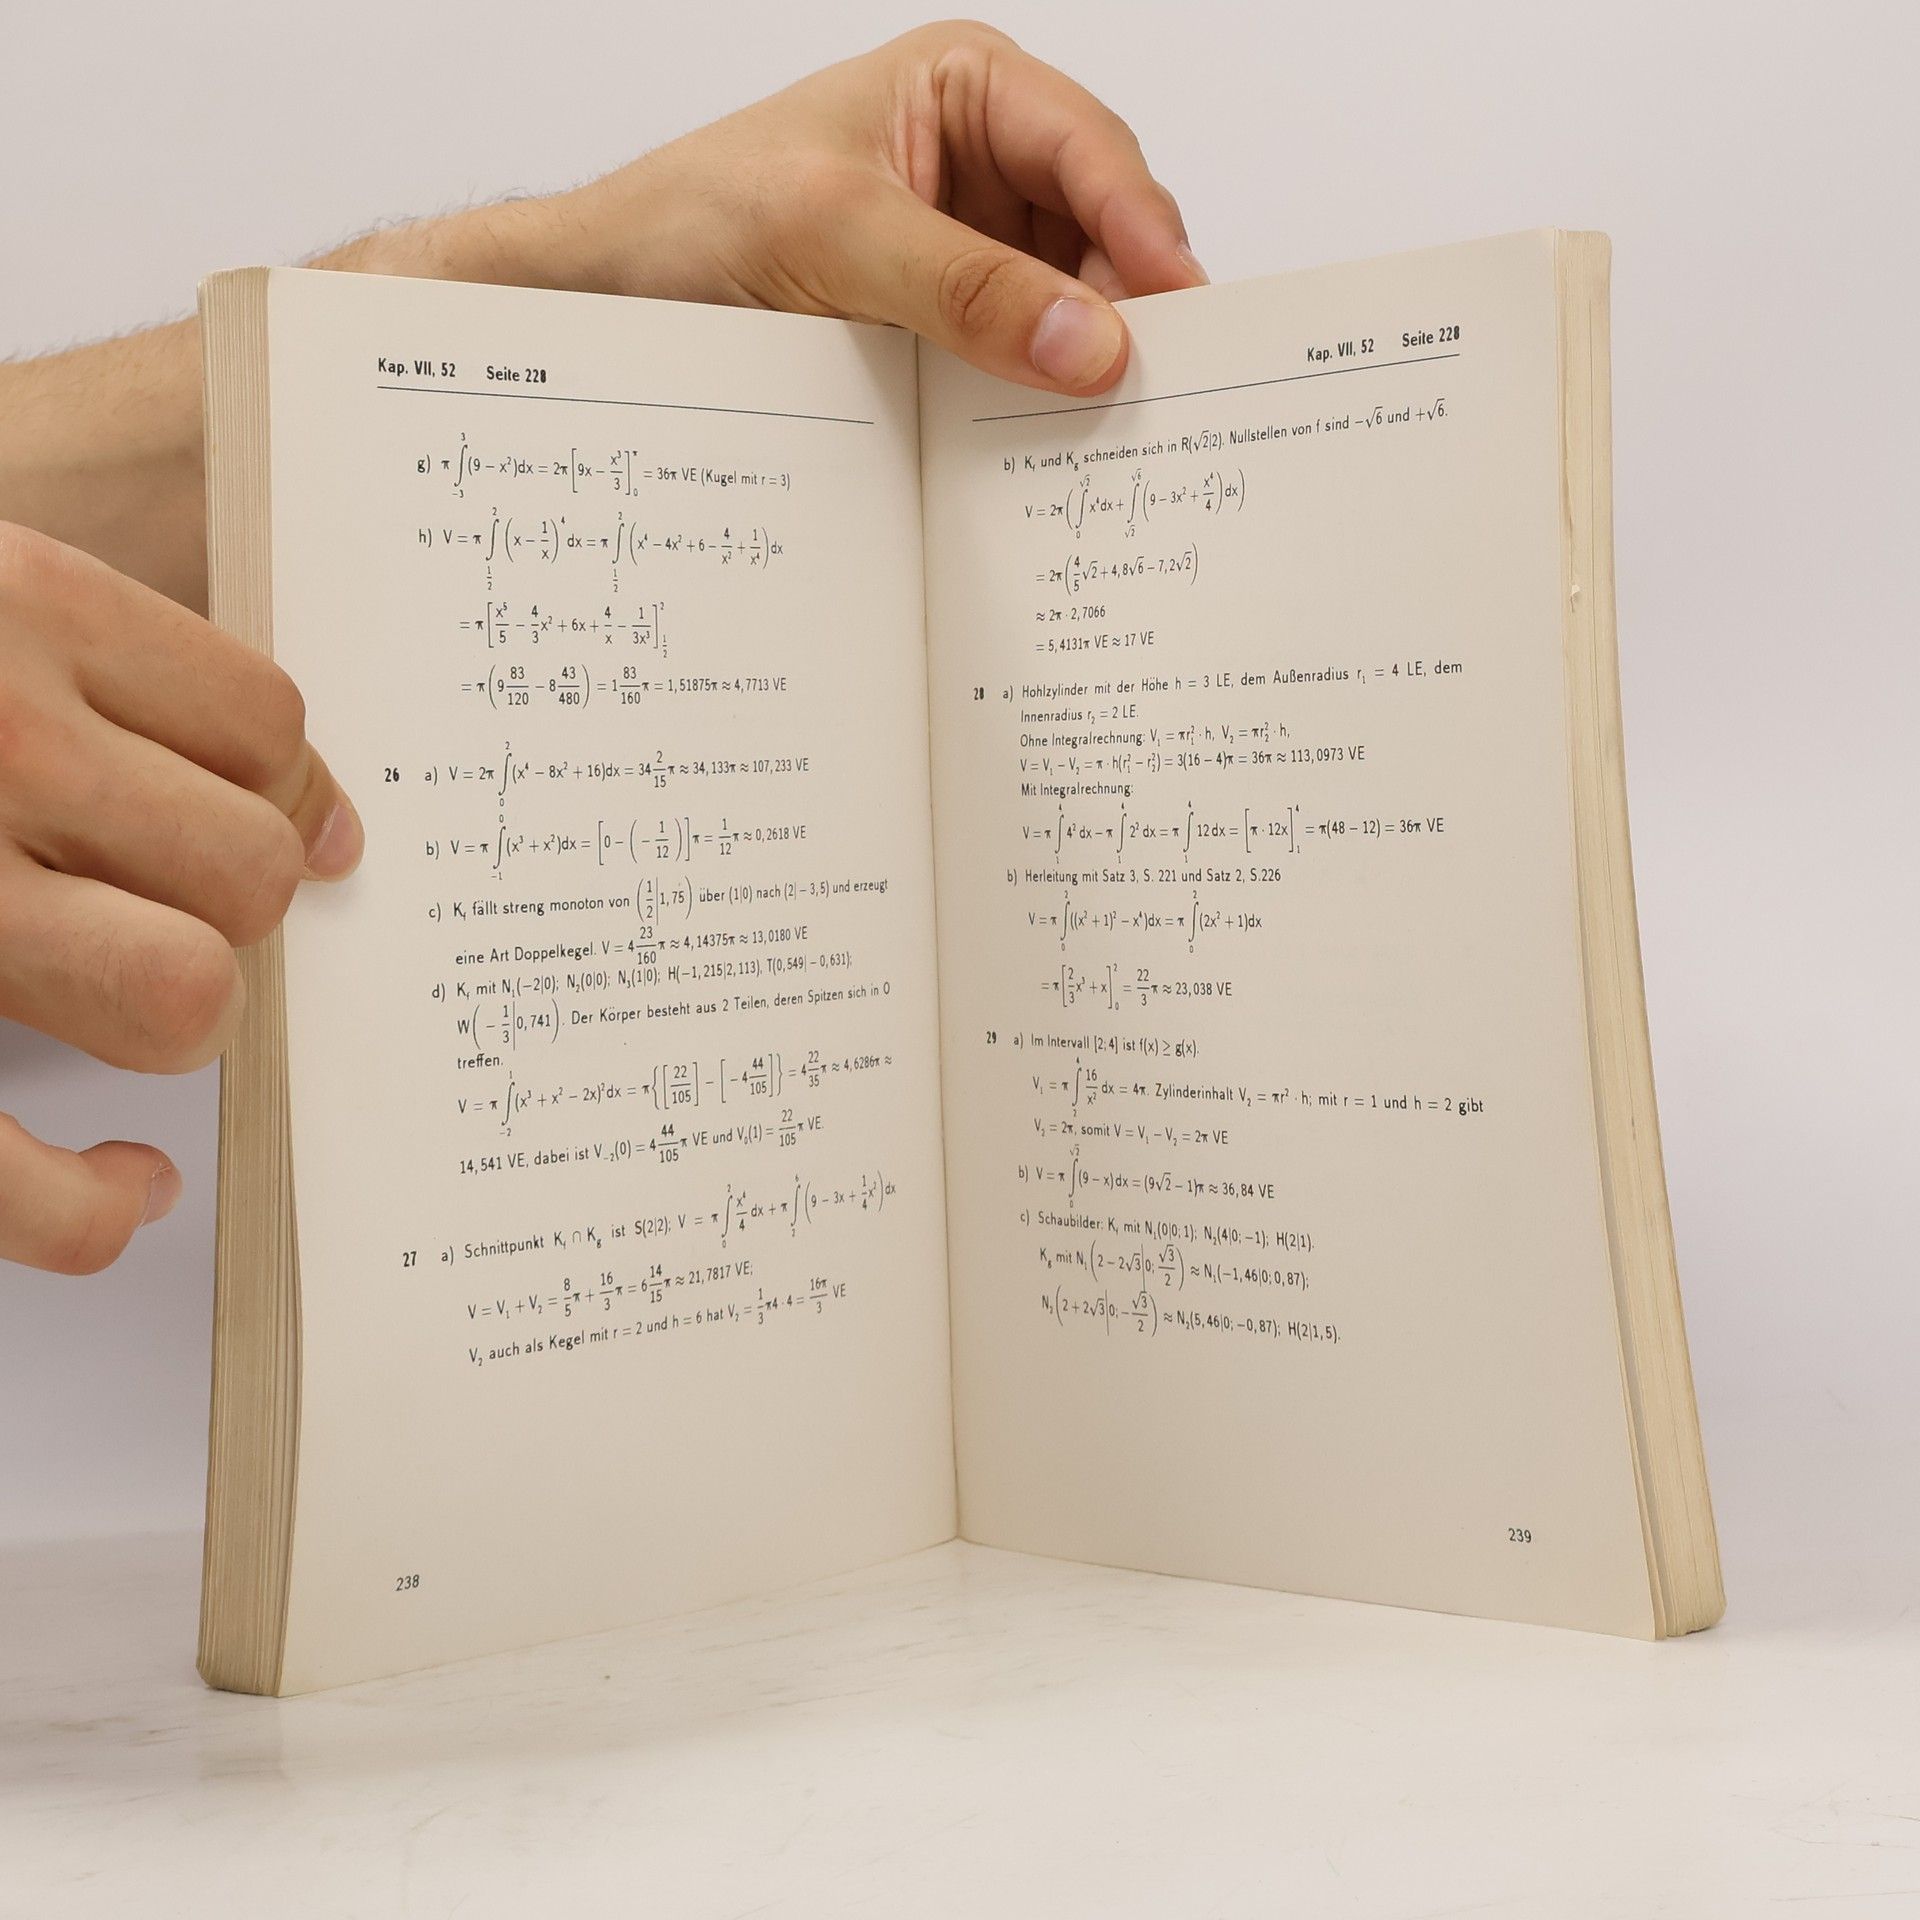 Kap. VII, 52 Seite 228
g) π ∫₋₃³ (9 − x²)dx = 2π [9x − x³/3]₀^π = 36π VE (Kugel mit r = 3)
h) V = π ∫_{1/2}^{2} (x − 1/x)⁴ dx = π ∫_{1/2}^{2} (x⁴ − 4x² + 6 − 4/x² + 1/x⁴) dx
= π [x⁵/5 − 4/3 x² + 6x + 4/x − 1/3x³]_{1/2}^{2}
= π (9 83/120 − 8 43/480) = 1 83/160 π = 1,51875π ≈ 4,7713 VE
26 a) V = 2π ∫₀² (x⁴ − 8x² + 16)dx = 34 2/15 π ≈ 34,133π ≈ 107,233 VE
b) V = π ∫₋₁⁰ (x³ + x²)dx = [0 − (− 1/12)] π = 1/12 π ≈ 0,2618 VE
c) K_f fällt streng monoton von (1/2|1,75) über (1|0) nach (2|−3,5) und erzeugt
eine Art Doppelkegel. V = 4 23/160 π ≈ 4,14375π ≈ 13,0180 VE
d) K_f mit N₁(−2|0); N₂(0|0); N₃(1|0); H(−1,215|2,113), T(0,549|−0,631);
W(− 1/3|0,741). Der Körper besteht aus 2 Teilen, deren Spitzen sich in O
treffen.
V = π ∫₋₂¹ (x³ + x² − 2x)² dx = π {[22/105] − [−4 44/105]} = 4 22/35 π ≈ 4,6286π ≈
14,541 VE, dabei ist V₋₂(0) = 4 44/105 π VE und V₀(1) = 22/105 π VE.
27 a) Schnittpunkt K_f ∩ K_g ist S(2|2); V = π ∫₀² x⁴/4 dx + π ∫₂⁶ (9 − 3x + 1/4 x²) dx
V = V₁ + V₂ = 8/5 π + 16/3 π = 6 14/15 π ≈ 21,7817 VE;
V₂ auch als Kegel mit r = 2 und h = 6 hat V₂ = 1/3 π4 · 4 = 16π/3 VE
238
Kap. VII, 52 Seite 228
b) K_f und K_g schneiden sich in R(√2|2). Nullstellen von f sind −√6 und +√6.
V = 2π (∫₀^{√2} x⁴dx + ∫_{√2}^{√6} (9 − 3x² + x⁴/4) dx)
= 2π (4/5 √2 + 4,8√6 − 7,2√2)
≈ 2π · 2,7066
= 5,4131π VE ≈ 17 VE
28 a) Hohlzylinder mit der Höhe h = 3 LE, dem Außenradius r₁ = 4 LE, dem
Innenradius r₂ = 2 LE.
Ohne Integralrechnung: V₁ = πr₁² · h, V₂ = πr₂² · h,
V = V₁ − V₂ = π · h(r₁² − r₂²) = 3(16 − 4)π = 36π ≈ 113,0973 VE
Mit Integralrechnung:
V = π ∫₁⁴ 4² dx − π ∫₁⁴ 2² dx = π ∫₁⁴ 12 dx = [π · 12x]₁⁴ = π(48 − 12) = 36π VE
b) Herleitung mit Satz 3, S. 221 und Satz 2, S.226
V = π ∫₀² ((x² + 1)² − x⁴)dx = π ∫₀² (2x² + 1)dx
= π [2/3 x³ + x]₀² = 22/3 π ≈ 23,038 VE
29 a) Im Intervall [2;4] ist f(x) ≥ g(x).
V₁ = π ∫₂⁴ 16/x² dx = 4π. Zylinderinhalt V₂ = πr² · h; mit r = 1 und h = 2 gibt
V₂ = 2π, somit V = V₁ − V₂ = 2π VE
b) V = π ∫₀^{√2} (9 − x)dx = (9√2 − 1)π ≈ 36,84 VE
c) Schaubilder: K_f mit N₁(0|0; 1); N₂(4|0; −1); H(2|1).
K_g mit N₁(2 − 2√3|0; √3/2) ≈ N₁(−1,46|0; 0,87);
N₂(2 + 2√3|0; −√3/2) ≈ N₂(5,46|0; −0,87); H(2|1,5).
239